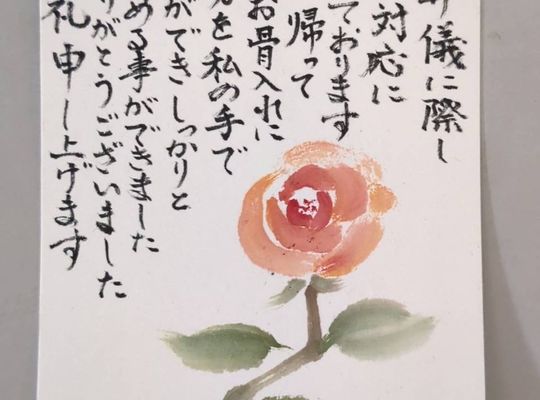 儀に際し
対応に
ております
帰って
お骨入れに
を私の手で
ができしっかりと
める事ができました
がとうございました
礼申し上げます